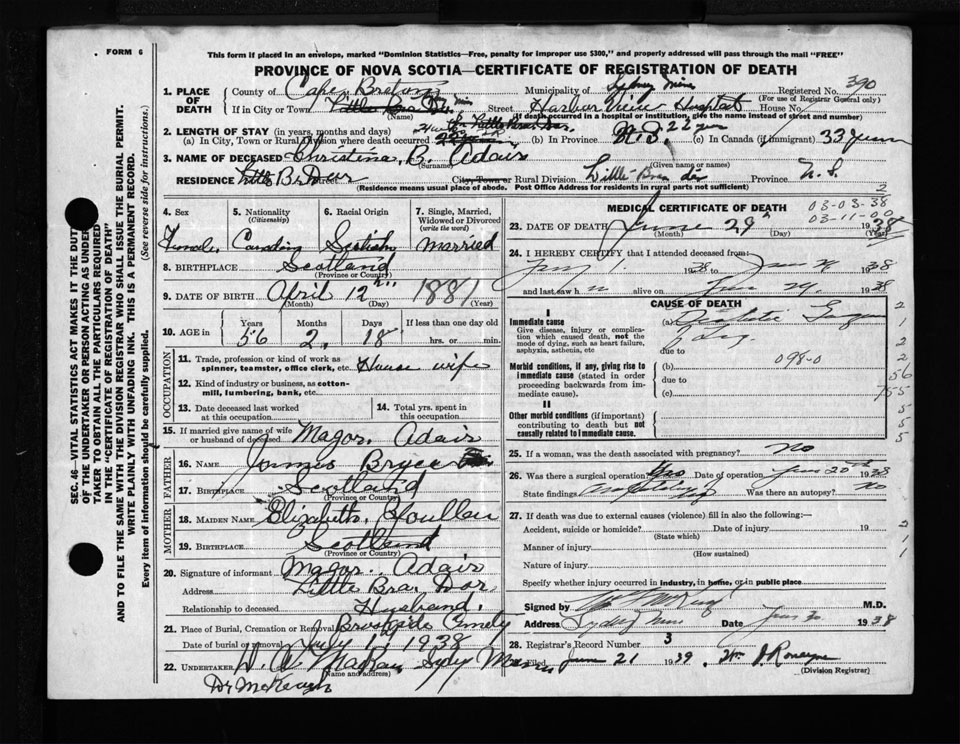 FORM 6
This form if placed in an envelope, marked "Dominion Statistics—Free, penalty for improper use $300," and properly addressed will pass through the mail "FREE"
PROVINCE OF NOVA SCOTIA—CERTIFICATE OF REGISTRATION OF DEATH
SEC. 46—VITAL STATISTICS ACT MAKES IT THE DUTY
OF THE UNDERTAKER OR PERSON ACTING AS UNDER-
TAKER TO OBTAIN ALL THE PARTICULARS REQUIRED
IN THE "CERTIFICATE OF REGISTRATION OF DEATH"
AND TO FILE THE SAME WITH THE DIVISION REGISTRAR WHO SHALL ISSUE THE BURIAL PERMIT.
WRITE PLAINLY WITH UNFADING INK. THIS IS A PERMANENT RECORD.
Every item of information should be carefully supplied. (See reverse side for instructions.)
1. PLACE OF DEATH County of Cape Breton Municipality of Sydney Mines Registered No. 390
(For use of Registrar General only)
If in City or Town Street Harbor View Hospital House No.
(Name) (If death occurred in a hospital or institution, give the name instead of street and number)
2. LENGTH OF STAY (in years, months and days) Little Bras Dor
(a) In City, Town or Rural Division where death occurred (b) In Province N.S. 22 yrs (c) In Canada (if immigrant) 33 years
3. NAME OF DECEASED Christina B. Adair
(Surname) (Given name or names)
RESIDENCE Little Br Dor Street City, Town or Rural Division Little Bras dor Province N. S.
(Residence means usual place of abode. Post Office Address for residents in rural parts not sufficient)
2
4. Sex 5. Nationality (Citizenship) 6. Racial Origin 7. Single, Married, Widowed or Divorced (write the word)
Female Canadian Scotish married
8. BIRTHPLACE Scotland
(Province or Country)
9. DATE OF BIRTH April 12th 1881
(Month) (Day) (Year)
10. AGE in Years Months Days If less than one day old
56 2 18 hrs. or min.
OCCUPATION
11. Trade, profession or kind of work as spinner, teamster, office clerk, etc. House wife
12. Kind of industry or business, as cotton-mill, lumbering, bank, etc.
13. Date deceased last worked at this occupation
14. Total yrs. spent in this occupation
15. If married give name of wife or husband of deceased Magor. Adair
FATHER
16. NAME James Bryce
17. BIRTHPLACE Scotland
(Province or Country)
MOTHER
18. MAIDEN NAME Elizabeth
19. BIRTHPLACE Scotland
(Province or Country)
20. Signature of informant Magor. Adair
Address Little Bra. Dor
Relationship to deceased Husband.
21. Place of Burial, Cremation or Removal Brookside Cemety
Date of burial or removal July 1, 1938
22. UNDERTAKER
(Name and address)
Dr McKeough
MEDICAL CERTIFICATE OF DEATH
03-03-38
03-11-00
23. DATE OF DEATH June 29th 1938
(Month) (Day) (Year)
24. I HEREBY CERTIFY that I attended deceased from:
1938 to 1938
and last saw h alive on June 29, 1938
CAUSE OF DEATH
I
Immediate cause
Give disease, injury or complication which caused death, not the mode of dying, such as heart failure, asphyxia, asthenia, etc
(a)
due to
Morbid conditions, if any, giving rise to immediate cause (stated in order proceeding backwards from immediate cause).
(b) 098-0
due to
(c)
II
Other morbid conditions (if important) contributing to death but not causally related to immediate cause.
2
1
2
2
56
755
5
5
5
25. If a woman, was the death associated with pregnancy? no
26. Was there a surgical operation Yes Date of operation June 20th 1938
State findings Was there an autopsy? no
27. If death was due to external causes (violence) fill in also the following:
Accident, suicide or homicide? Date of injury 19
(State which)
Manner of injury
(How sustained)
Nature of injury
Specify whether injury occurred in industry, in home, or in public place
2
1
1
Signed by M.D.
Address Sydney Mines Date June 30 1938
28. Registrar's Record Number 3
Filed June 21 1939
(Division Registrar)